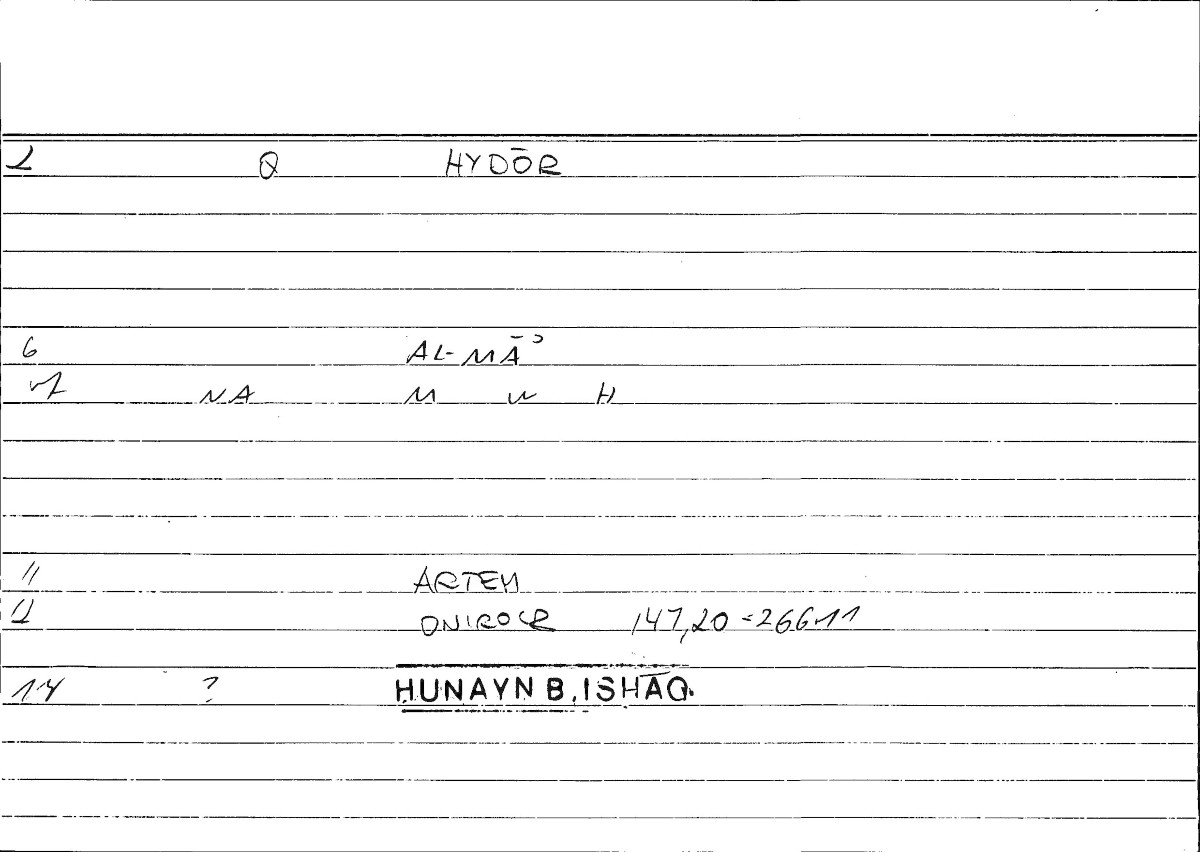 2 Q HYDŌR
6 AL-MĀʾ
NA M W H
11 ARTEM
12 ONIROCR 147,20 = 266.11
14 ? ḤUNAYN B. ISḤĀQ